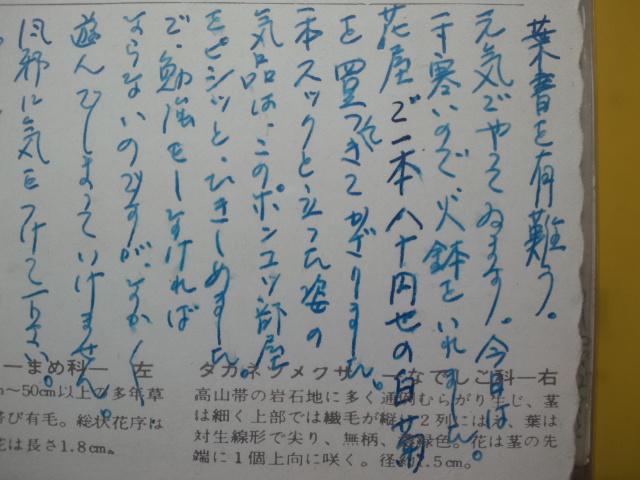 葉書を有難う。
元気でやってゐます。今日は
一寸寒いので火鉢をいれました。
花屋で一本八十円也の白菊
を買ってきてかざりました。
一本スックと立った姿の
気品は、このポンコツ部屋
をピシッと、ひきしめました。
で、勉強をしなければ
ならないのですが、とかく
遊んでしまっていけません。
風邪に気をつけて下さい。
タカネツメクサ —なでしこ科— 右
高山帯の岩石地に多く通常むらがり生じ、茎
は細く上部では繊毛が縦に2列にはえ、葉は
対生線形で尖り、無柄、緑色。花は茎の先
端に1個上向に咲く。径約1.5cm。
—まめ科— 左
〜50cm以上の多年草
び有毛。総状花序は
は長さ1.8cm。